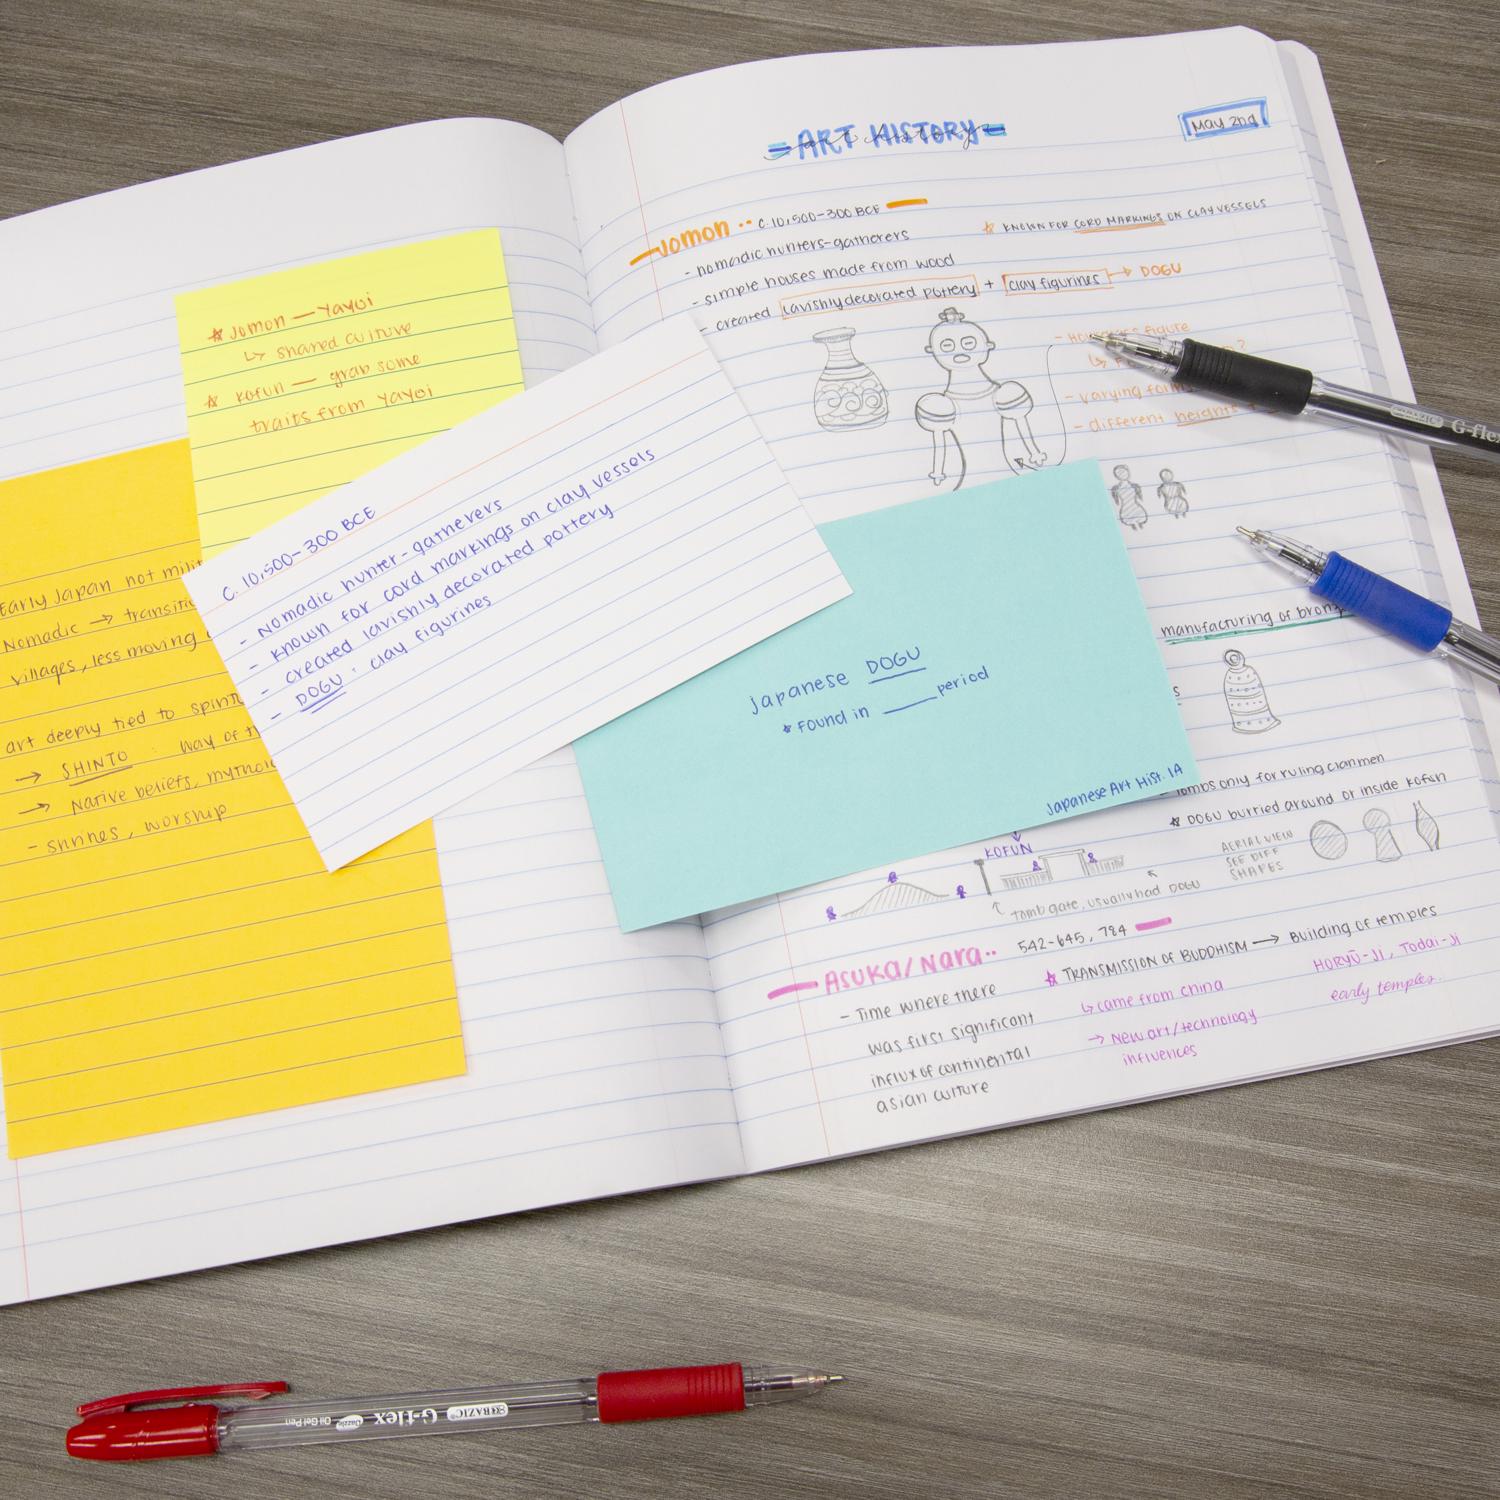 ART HISTORY
art history
May 2nd
Jomon •• C. 10,500-300 BCE
- nomadic hunters-gatherers
☆ KNOWN FOR CORD MARKINGS ON CLAY VESSELS
- simple houses made from wood
- created lavishly decorated pottery + clay figurines → DOGU
figure
- varying
- different heights
manufacturing of
Tombs only for ruling clanmen
☆ DOGU burried around or inside Kofun
AERIAL VIEW
SEE DIFF
SHAPES
KOFUN
Tomb gate, usually had DOGU
ASUKA/NARA•• 542-645, 784
- Time where there
was first significant
influx of continental
asian culture
☆ TRANSMISSION OF BUDDHISM → Building of temples
↳ came from China
→ New art/technology
influences
HORYŪ-JI, Todai-Ji
early temples.
☆ Jomon — Yayoi
↳ shared culture
☆ Kofun — grab some
traits from Yayoi
Early Japan not
Nomadic →
villages, less moving
art deeply tied to
→ SHINTO : Way of
→ Native beliefs,
- shrines, worship
C. 10,500-300 BCE
- Nomadic hunter-gatherers
- known for cord markings on clay vessels
- created lavishly decorated pottery
- DOGU : clay figurines
Japanese DOGU
☆ Found in ____ period
Japanese Art Hist. 1A
BAZIC G-flex
BAZIC G-flex Dazzle Oil Gel Pen